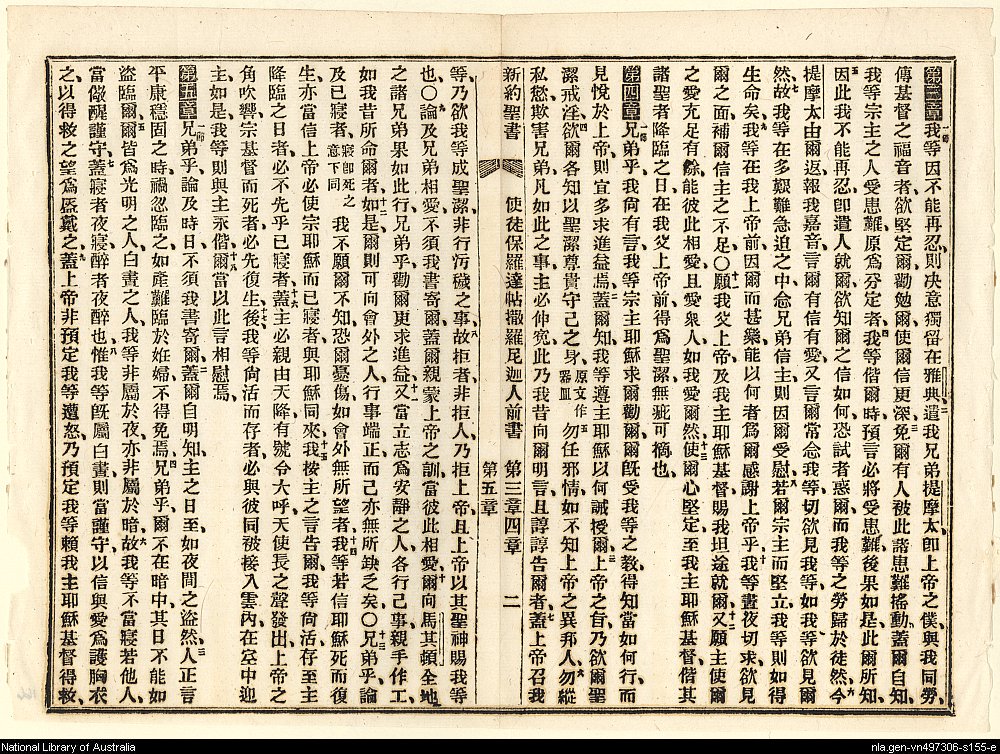 第三章 一節 我等因不能再忍、則決意獨留在雅典、二遣我兄弟提摩太、卽上帝之僕、與我同勞、
傳基督之福音者、欲堅定爾、勸勉爾、使爾信更深、三免爾有人被此諸患難搖動、蓋爾自知、
我等宗主之人受患難、原爲分定者、四我等偕爾時、預言必將受患難、後果如是、此爾所知、
五因此我不能再忍、卽遣人就爾、欲知爾之信如何、恐試者惑爾、而我等之勞歸於徒然、六今
提摩太由爾返、報我嘉音、言爾有信有愛、又言爾常念我等、切欲見我等、如我等欲見爾
然、七故我等在多艱難急迫之中、念兄弟信主、則因爾受慰、八若爾宗主而堅立、我等則如得
生命矣、九我等在我上帝前、因爾而甚樂、能以何者爲爾感謝上帝乎、十我等晝夜切求、欲見
爾之面、補爾信主之不足、〇十一願我父上帝、及我主耶穌基督、賜我坦途就爾、十二又願主使爾
之愛充足有餘、能彼此相愛、且愛衆人、如我愛爾然、十三使爾心堅定、至我主耶穌基督、偕其
諸聖者降臨之日、在我父上帝前、得爲聖潔無疵可摘也、
第四章 一節 兄弟乎、我尙有言、我等宗主耶穌求爾勸爾、爾旣受我等之教、得知當如何行而
見悅於上帝、則宜多求進益焉、二蓋爾知我等遵主耶穌以何誡授爾、三上帝之旨、乃欲爾聖
潔戒淫、四欲爾各知以聖潔尊貴守己之身、原文作器皿 五勿任邪情、如不知上帝之異邦人、六勿縱
私慾欺害兄弟、凡如此之事、主必伸寃、此乃我昔向爾明言、且諄諄告爾者、七蓋上帝召我
新約聖書 使徒保羅達帖撒羅尼迦人前書 第三章四章 第五章 二
等、乃欲我等成聖潔、非行汚穢之事、八故拒者非拒人、乃拒上帝、且上帝以其聖神賜我等
也、〇九論及兄弟相愛、不須我書寄爾、蓋爾親蒙上帝之訓、當彼此相愛、十爾向馬其頓全地
之諸兄弟、果如此行、兄弟乎、勸爾更求進益、十一又當立志爲安靜之人、各行己事、親手作工、
如我昔所命爾者、十二如是爾則可向會外之人、行事端正、而己亦無所缺之矣、〇十三兄弟乎、論
及已寢者、寢卽死之意下同 我不願爾不知、恐爾憂傷、如會外無所望者、十四我等若信耶穌死而復
生、亦當信上帝必使宗耶穌而已寢者、與耶穌同來、十五我按主之言告爾、我等尙活存至主
降臨之日者、必不先乎已寢者、十六蓋主必親由天降、有號令大呼、天使長之聲發出、上帝之
角吹響、宗基督而死者必先復生、十七後我等尙活而存者、必與彼同被接入雲內、在空中迎
主、如是我等則與主永偕、十八爾當以此言相慰焉、
第五章 一節 兄弟乎、論及時日、不須我書寄爾、二蓋爾自明知主之日至、如夜間之盜然、三人正言
平康穩固之時、禍忽臨之、如產難臨於姙婦、不得免焉、四兄弟乎、爾不在暗中、其日不能如
盜臨爾、五爾皆爲光明之人、白晝之人、我等非屬於夜、亦非屬於暗、六故我等不當寢若他人、
當儆醒謹守、七蓋寢者夜寢、醉者夜醉也、八惟我等旣屬白晝、則當謹守、以信與愛爲護胸衣
之、以得救之望爲盔戴之、九蓋上帝非預定我等遭怒、乃預定我等賴我主耶穌基督得救、
National Library of Australia
nla.gen-vn497306-s155-e